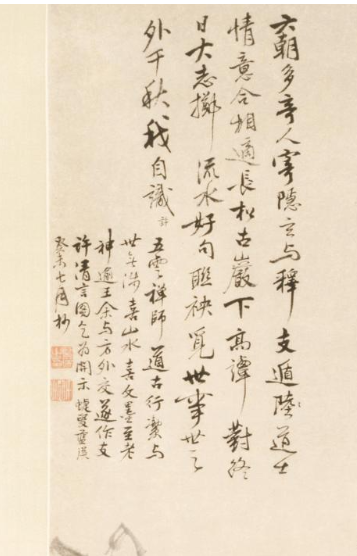 六朝多奇人寄隱玄与釋支遁陸道士
情意合相適長松古巖下高譚對終
日大志擲流水好句聯袂覓世事世之
外千秋我自識
五雲禪師道古行潔与
世無涉喜山水喜文墨至老
神遁王余与方外交遂作支
許清言圖乞為開示
癸未七月抄